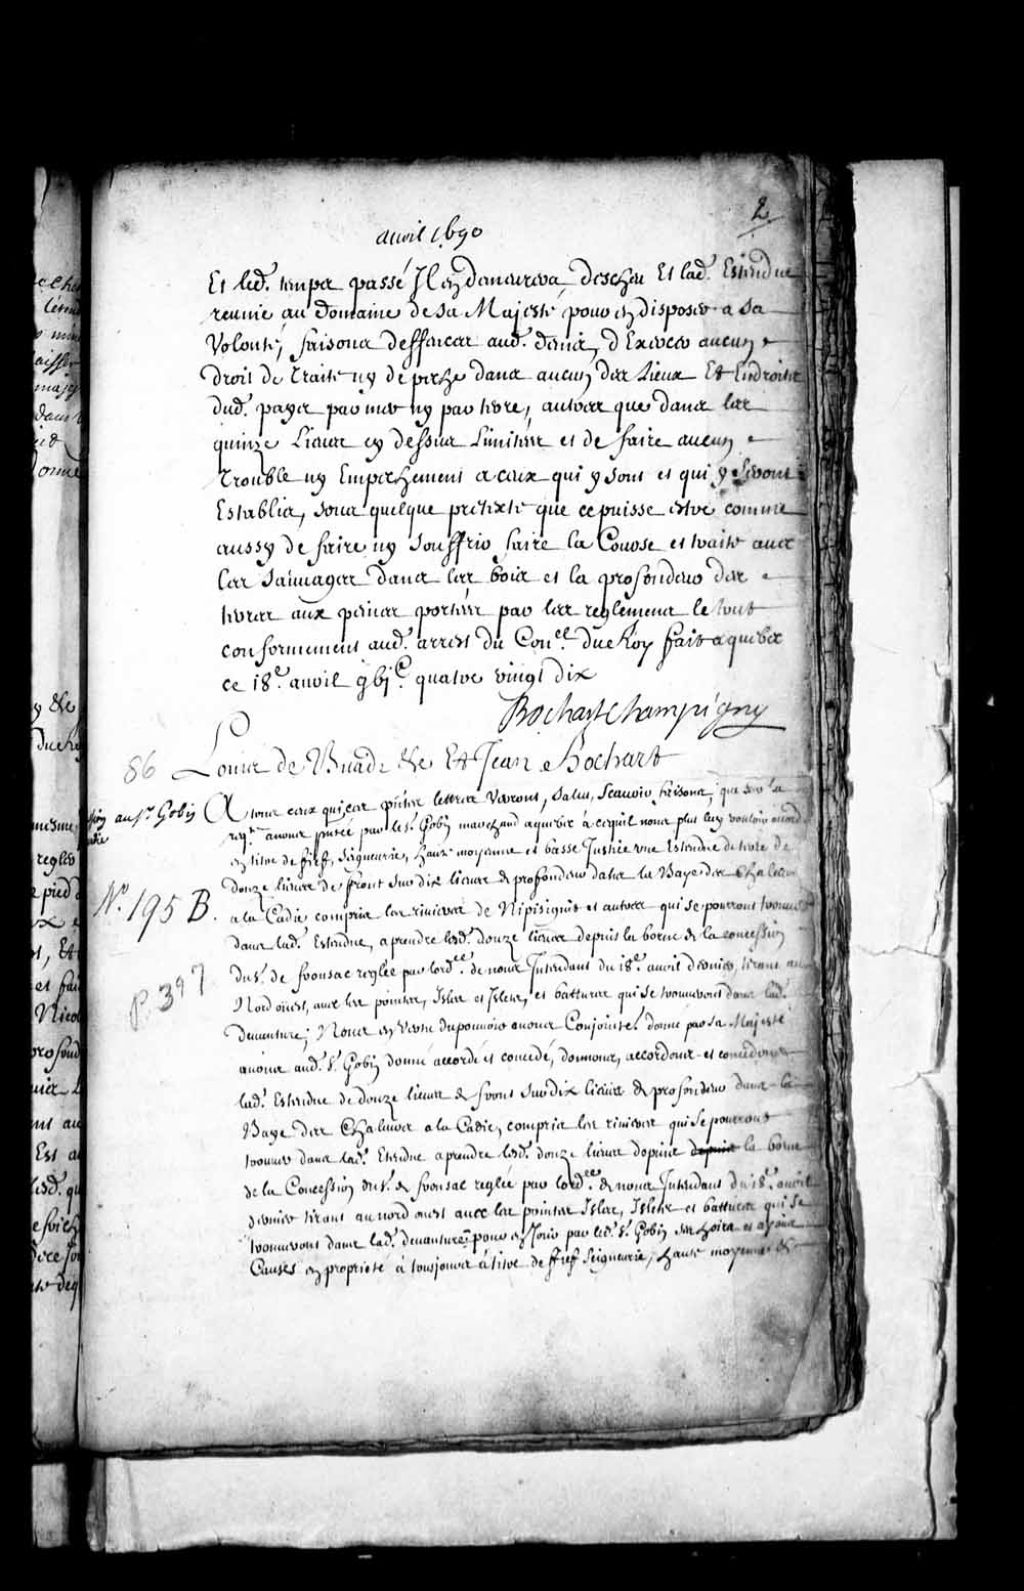 2
avril 1690
Et led. temps passé Il en demeurera descheu Et lad. Estendue
reunie au Domaine de Sa Majesté pour en disposer a sa
Volonté, faisons deffences aud. denis, d'Exercer aucun
droit de traite ny de pesche dans aucun des Lieux Et Endroits
dud. pays par mer ny par terre, autres que dans les
quinze Lieues cy dessus Limitées et de faire aucun
trouble ny Empeschement a ceux qui y sont et qui y seront
Establis, sous quelque pretexte que ce puisse estre comme
aussy de faire ny souffrir faire la Course et traite avec
les sauvages dans les bois et la profondeur des
terres aux peines portées par les reglemens le tout
conformement aud. arrest du Con.el du Roy fait a quebec
ce 18e. avril gbjC. quatre vingt dix
Bochart Champigny
86 Louis de Buade &c Et Jean Bochart
au Sr. Gobin
A tous ceux qui ces pntes lettres Verront, Salut, Scavoir faisons, que sur la
reqte. a nous pntée par le Sr. Gobin marchand a quebec a ce qu'il nous plut luy vouloir accord
en titre de fief, Seigneurie, haute moyenne et basse Justice une Estendue de terre de
douze lieues de front sur dix lieues de profondeur dans la Baye des Chaleurs
No. 195 B.
a la Cadie compris les rivieres de Nipisiguit et autres qui se pourront trouver
dans lad. Estendue, a prendre lesd. douze lieues depuis la borne de la concession
du Sr. de fronsac reglée par lord.ce de nous Intendant du 18e. avril dernier, tirant au
P. 397
Nord ouest, avec les pointes, Isles et Islets, et battures qui se trouveront dans lad.
devanture; Nous en Vertu du pouvoir a nous Conjointt. donné par sa Majesté
avons aud. S. Gobin donné accordé et concedé, donnons, accordons et concedons
lad. Estendue de douze lieues de front sur dix lieues de profondeur dans la
Baye des Chaleurs a la Cadie, compris les rivieres qui se pourront
trouver dans lad. Etendue a prendre lesd. douze lieues depuis depuis la borne
de la Concession du Sr. de fronsac reglée par lord.ce de nous Intendant du 18e. avril
dernier tirant au nord ouest avec les pointes Isles, Islets et battures qui se
trouveront dans lad. devanture pour en Jouir par led. S. Gobin ses hoirs et ayans
Causes en proprieté a tousjours a titre de fief Seigneurie, haute moyenne &